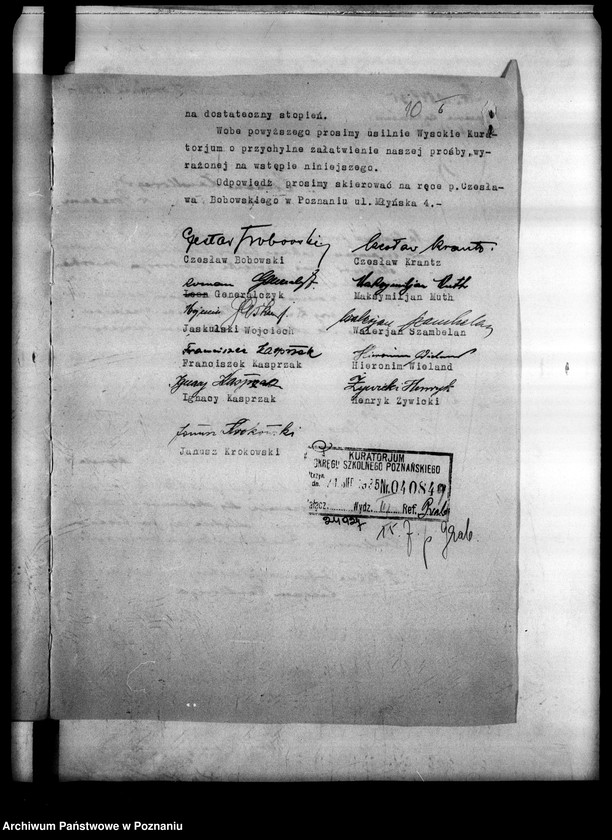 10
6
na dostateczny stopień.
Wobe powyższego prosimy usilnie Wysokie Kura-
torjum o przychylne załatwienie naszej prośby, wy-
rażonej na wstępie niniejszego.
Odpowiedź prosimy skierować na ręce p. Czesła-
wa Bobowskiego w Poznaniu ul. Młyńska 4.-
Czesław Bobowski
Czesław Krantz
Czesław Bobowski
Czesław Krantz
Roman
Maksymiljan Muth
Generalczyk
Maksymiljan Muth
Wojciech
Walerjan Szambelan
Jaskulski Wojciech
Walerjan Szambelan
Franciszek Kasprzak
Hieronim Wieland
Franciszek Kasprzak
Hieronim Wieland
Ignacy Kasprzak
Żywicki Henryk
Ignacy Kasprzak
Henryk Żywicki
Janusz Krokowski
Janusz Krokowski
KURATORJUM
OKRĘGU SZKOLNEGO POZNAŃSKIEGO
dn. Nr. 040849
Wydz. III Ref.
24927
Archiwum Państwowe w Poznaniu